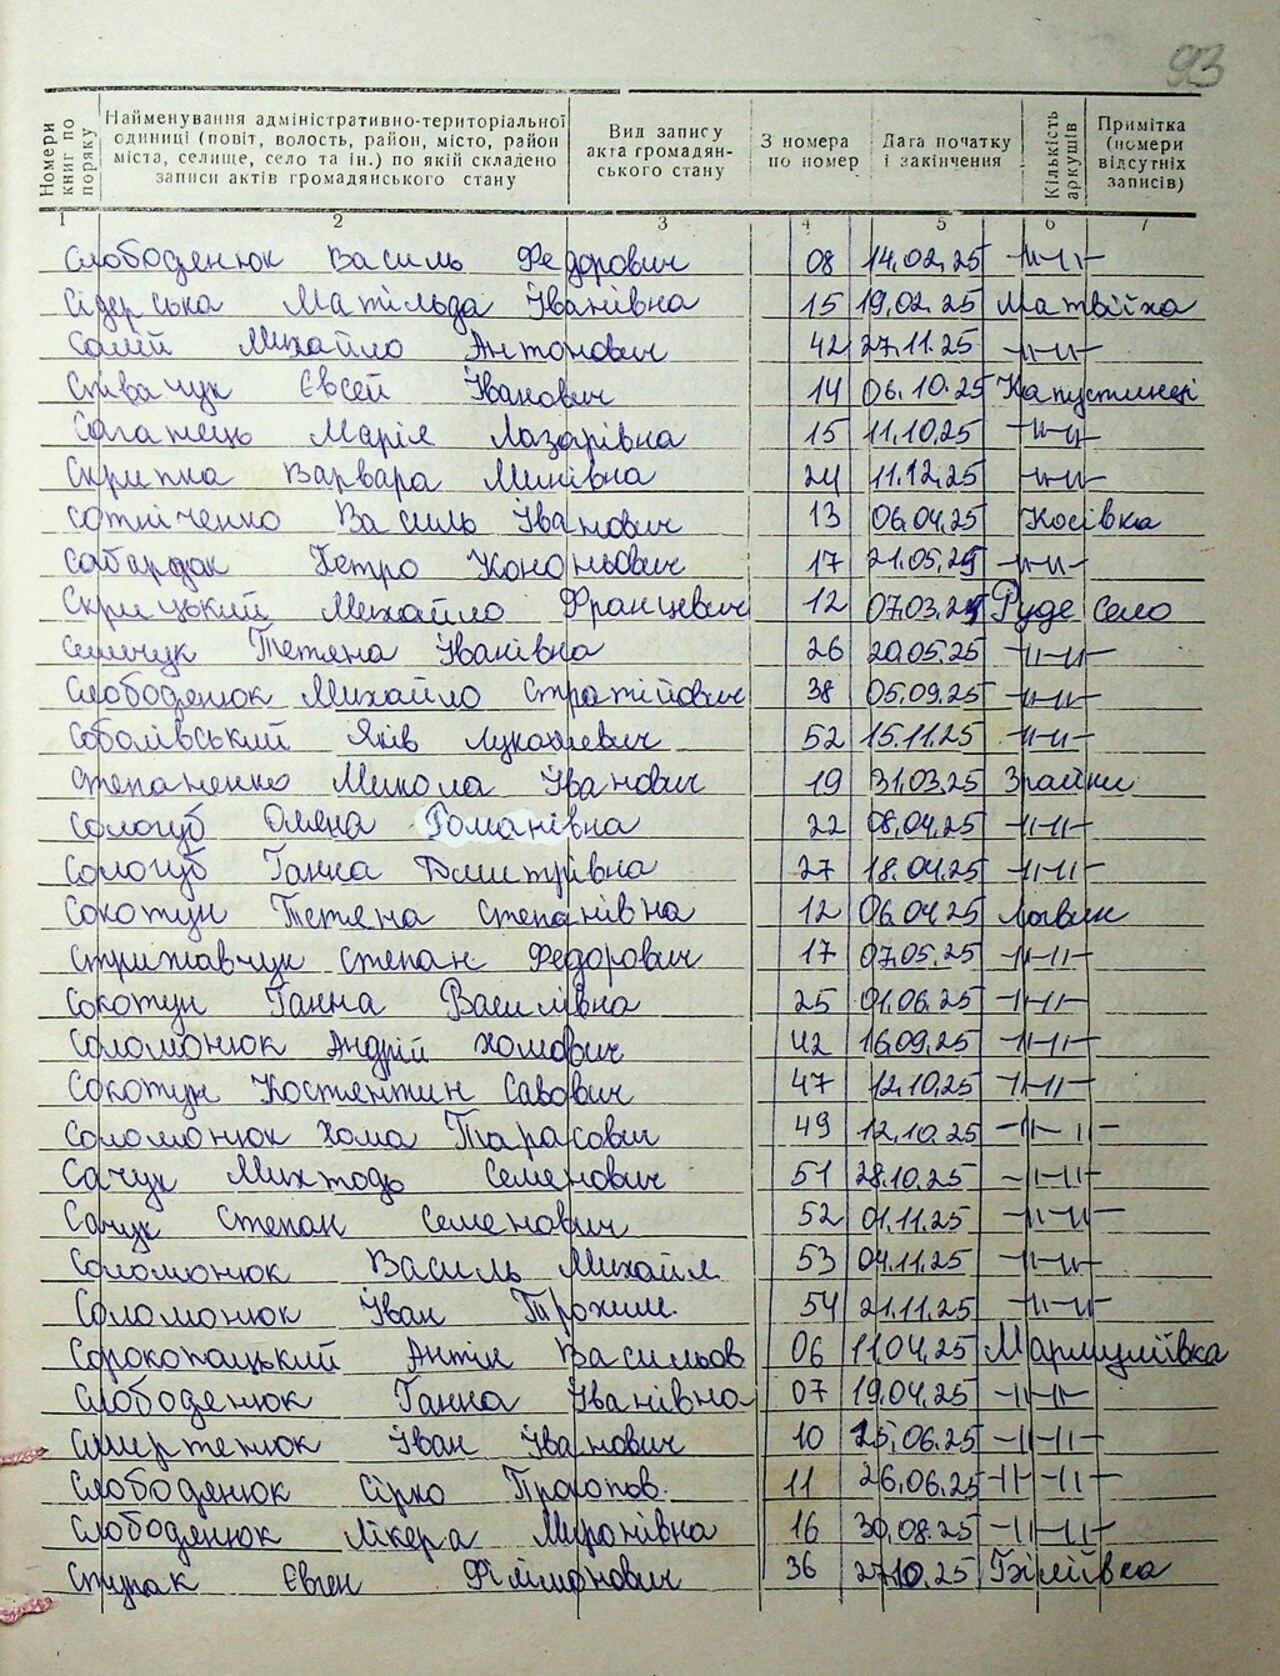 93
Номери книг по поряку
Найменування адміністративно-територіальної одиниці (повіт, волость, район, місто, район міста, селище, село та ін.) по якій складено записи актів громадянського стану
Вид запису акта громадян-ського стану
З номера по номер
Дата початку і закінчення
Кількість аркушів
Примітка (номери відсутніх записів)
1 2 3 4 5 6 7
Слободенюк Василь Федорович 08 14.02.25 -//-//-
Сідерська Матільда Іванівна 15 19.02.25 Матвіїха
Салій Михайло Антонович 42 27.11.25 -//-//-
Співачук Євсей Іванович 14 06.10.25 Капустинці
Сагатець Марія Лазарівна 15 11.10.25 -//-//-
Скрипка Варвара Минівна 24 11.12.25 -//-//-
Сотніченко Василь Іванович 13 06.04.25 Косівка
Сабардак Петро Кононович 17 21.05.25 -//-//-
Скрицький Михайло Францевич 12 07.03.25 Руде село
Семчук Тетяна Іванівна 26 20.05.25 -//-//-
Слободенюк Михайло Стратійович 38 05.09.25 -//-//-
Соболівський Яків Лукашевич 52 15.11.25 -//-//-
Степаненко Микола Іванович 19 31.03.25 Зрайки
Сологуб Олена Романівна 22 08.04.25 -//-//-
Сологуб Ганна Дмитрівна 27 18.04.25 -//-//-
Сокотун Тетяна Степанівна 12 06.04.25 Логвин
Стрижавчук Степан Федорович 17 07.05.25 -//-//-
Сокотун Ганна Василівна 25 01.06.25 -//-//-
Соломонюк Андрій Хомович 42 16.09.25 -//-//-
Сокотун Костянтин Савович 47 12.10.25 -//-//-
Соломонюк Хома Тарасович 49 12.10.25 -//-//-
Сачук Михтодь Семенович 51 28.10.25 -//-//-
Сачук Степан Семенович 52 01.11.25 -//-//-
Соломонюк Василь Михайл. 53 04.11.25 -//-//-
Соломонюк Іван Трохим. 54 21.11.25 -//-//-
Сорокопацький Антін Васильов 06 11.04.25 Мармуліївка
Слободенюк Ганна Іванівна 07 19.04.25 -//-//-
Смертенюк Іван Іванович 10 25.06.25 -//-//-
Слободянюк Сірко Прокопов. 11 26.06.25 -//-//-
Слободянюк Лікера Миронівна 16 30.08.25 -//-//-
Ступак Євген Філімонович 36 27.10.25 Біліївка